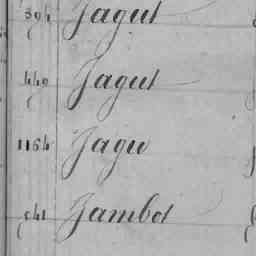 394 Jagut
449 Jagut
1154 Jagu
541 Jambot